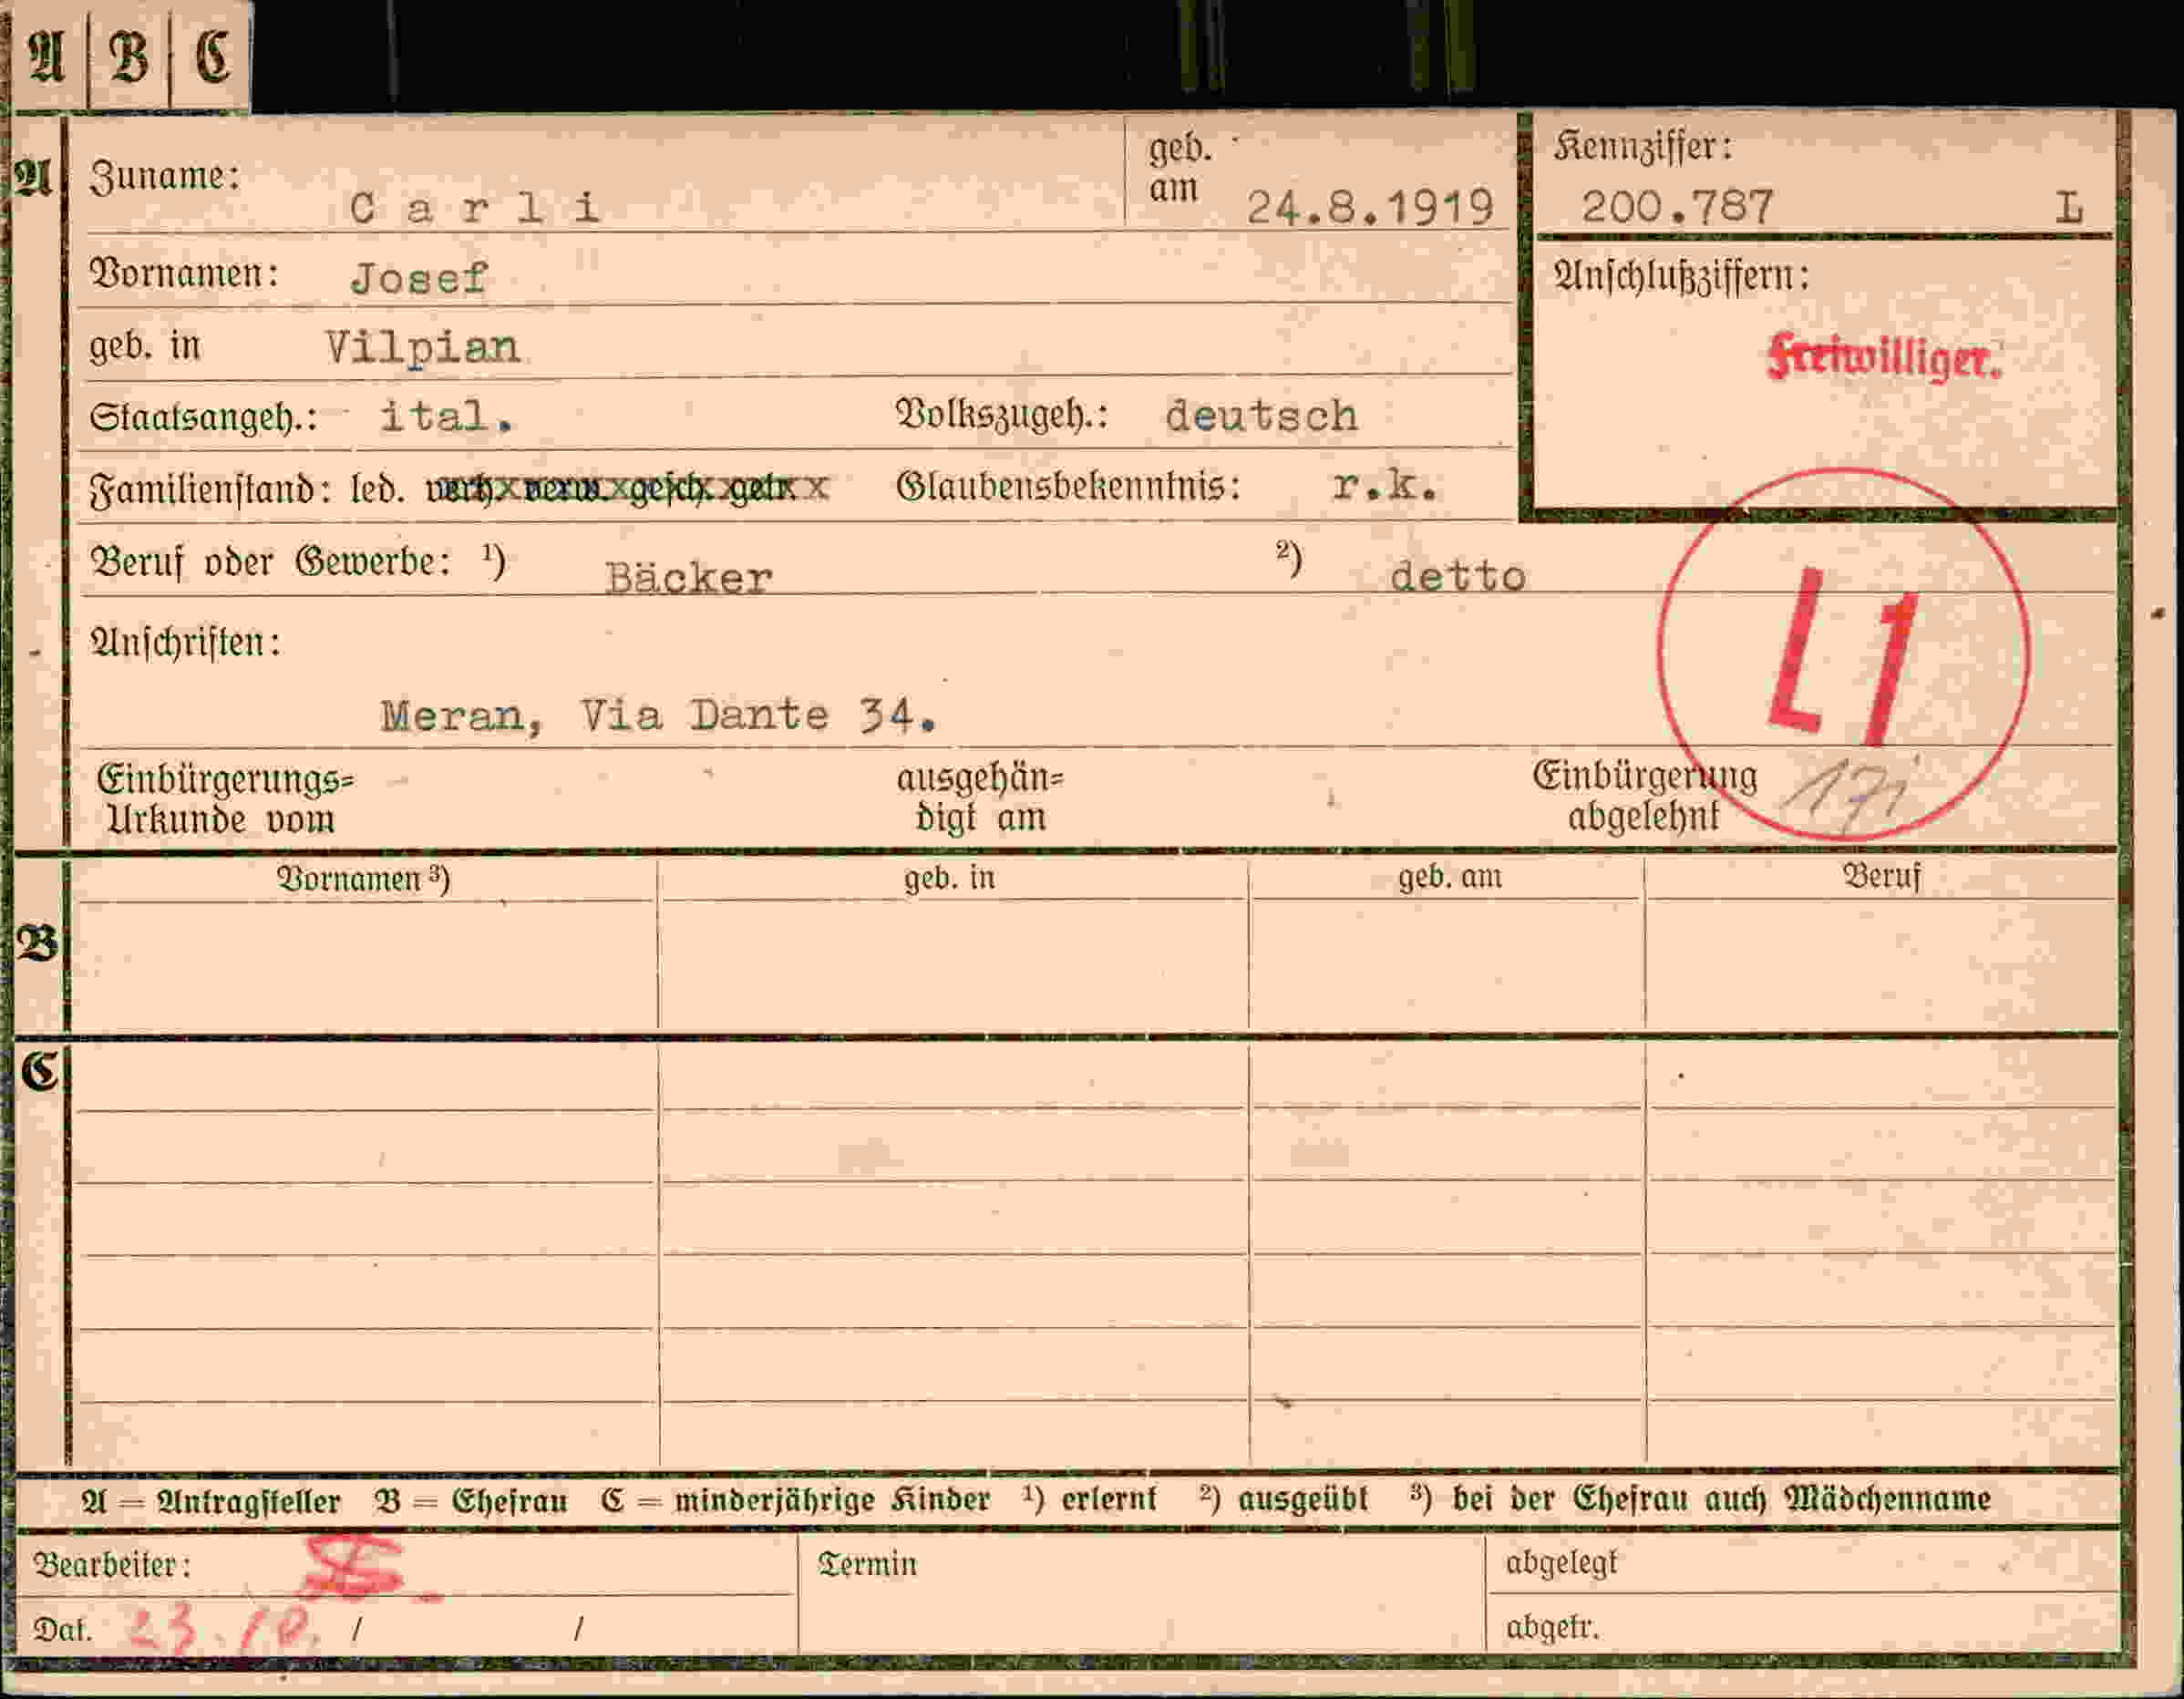 A | B | C
A
Zuname: Carli geb. am 24.8.1919
Kennziffer: 200.787 L
Vornamen: Josef
Anschlußziffern:
Freiwilliger.
geb. in Vilpian
Staatsangeh.: ital. Volkszugeh.: deutsch
Familienstand: led. verh. verw. gesch. getr. Glaubensbekenntnis: r.k.
Beruf oder Gewerbe: ¹) Bäcker ²) detto
L1
Anschriften:
Meran, Via Dante 34.
Einbürgerungs=
Urkunde vom
ausgehän=
digt am
Einbürgerung
abgelehnt
B
Vornamen ³) geb. in geb. am Beruf
C
A = Antragsteller B = Ehefrau C = minderjährige Kinder ¹) erlernt ²) ausgeübt ³) bei der Ehefrau auch Mädchenname
Bearbeiter: Termin abgelegt
Dat. 23.10. / / abgetr.